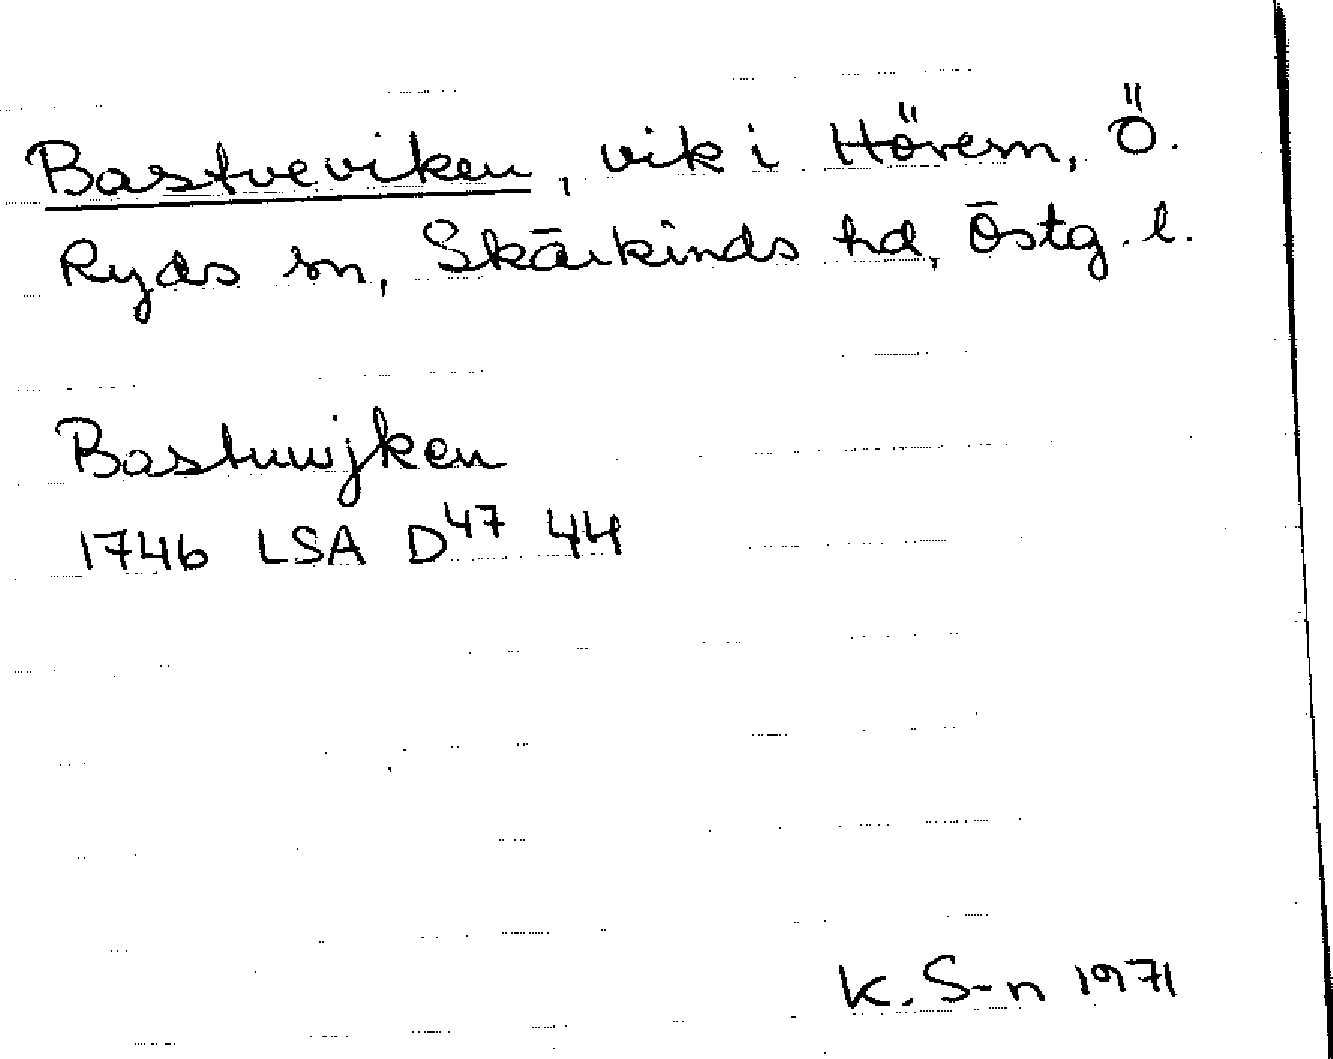 Bastveviken, vik i Hövern, Ö.
Ryds sn, Skärkinds hd, Östg. l.
Bastuwijken
1746 LSA D47 44
K. S-n 1971